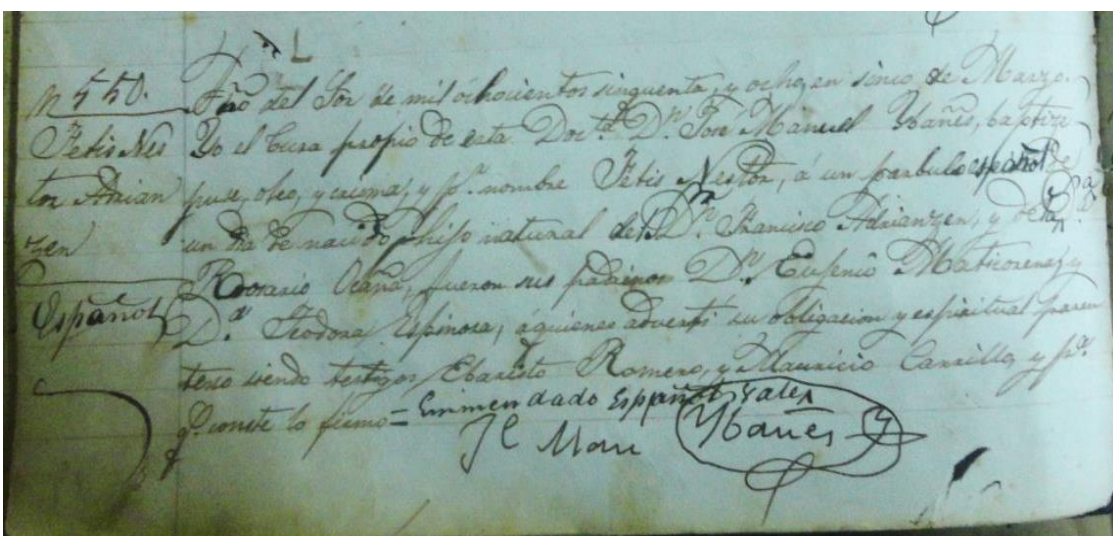 N 550.
Fetis Nes
tor Adrian
zen
Español
Año del Sor de mil ochocientos sinquenta, y ocho, en sinco de Marzo.
Yo el Cura propio de esta Doct.a D.n José Manuel Ybañes, baptize
puse, oleo, y crisma, y p.r nombre Fetis Nestor, á un parbulo español de
un dia de nacido, hijo natural de D.n Francisco Adrianzen, y de D.a
Rosario Ocaña, fueron sus padrinos D.n Eufenio Maticorena, y
D.a Teodora Espinosa, á quienes adverti su obligacion y espiritual paren
tesco siendo testigos Ebaristo Romero, y Mauricio Carrillo, y p.a
q.e conste lo firmo = Enmendado Español, vale
J.e Man Ybañes